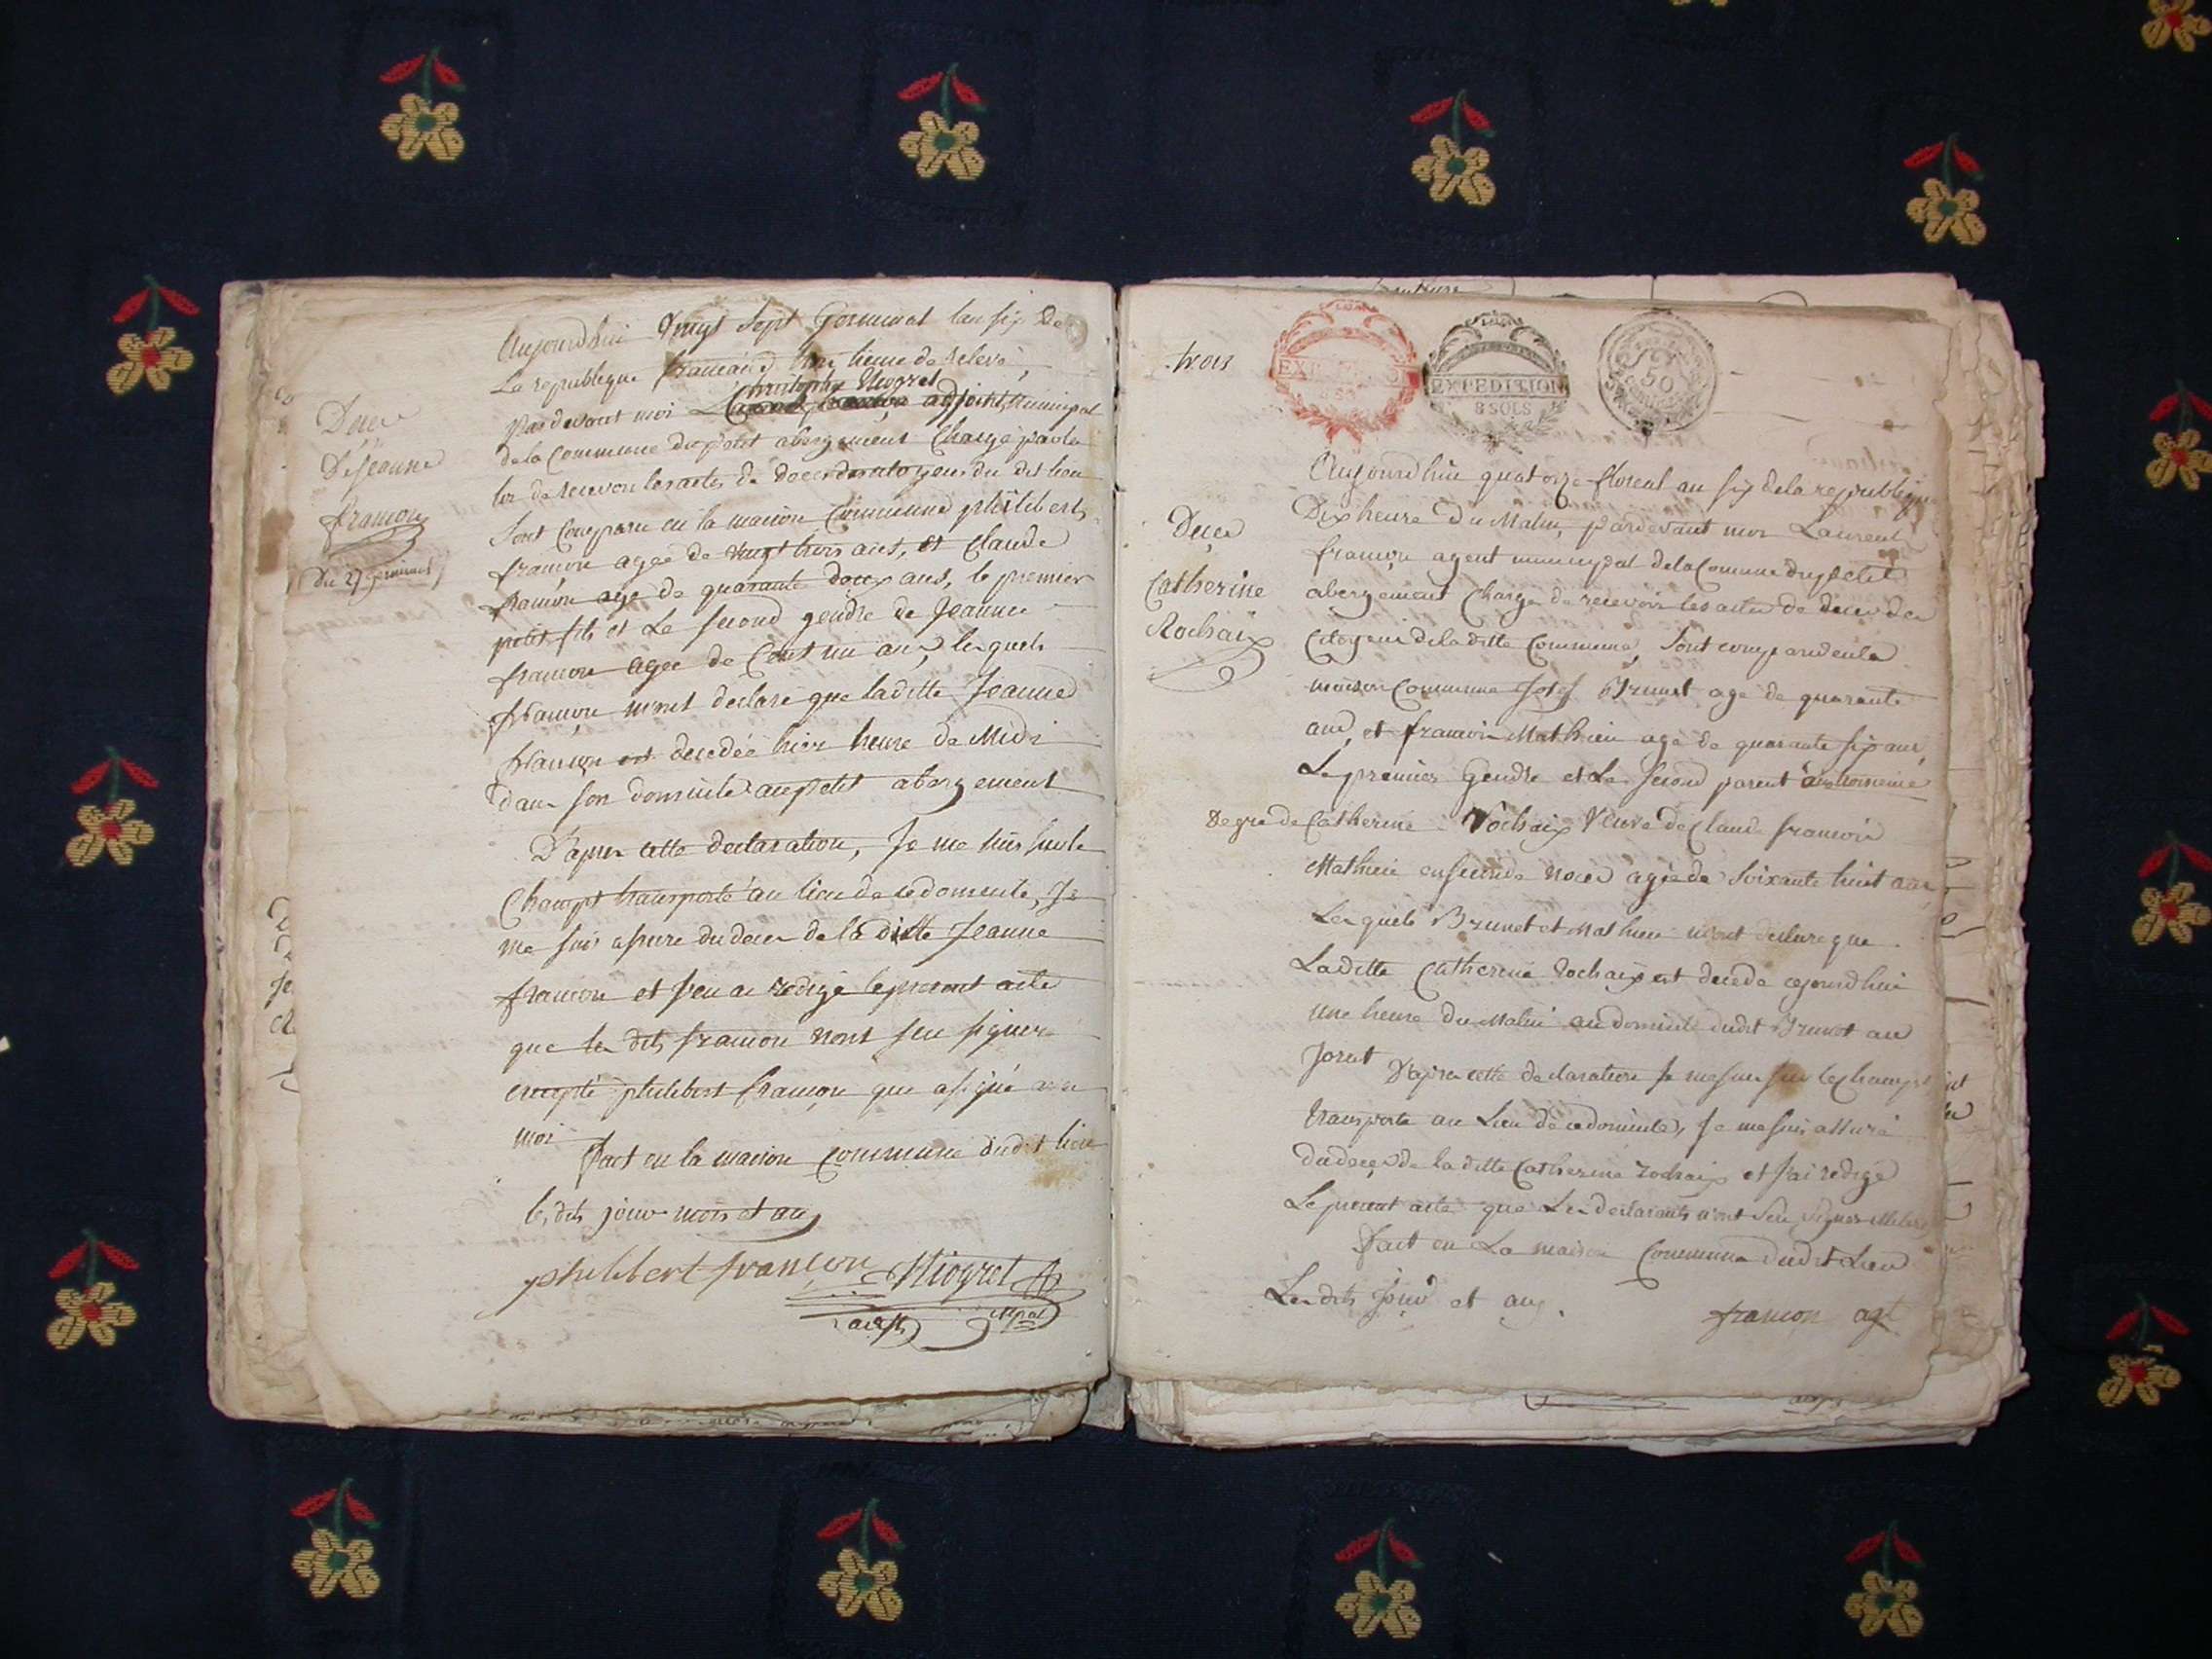 Deces
De Jeanne
françon
Du 27 germinal
Aujourdhui Vingt Sept Germinal lan six De
La republique francaise heure de Relevé
Christophe Niogret
Pardevant moi adjoint Municipal
de la Commune du petit abergement Chargé par la
loi de recevoir les actes de deces des citoyens du dit lieu
Sont Comparu en la maison Commune philibert
françon agée de vingt trois ans, et Claude
françon agé de quarante deux ans, le premier
petit fils et Le second gendre de Jeanne
françon agée de Cent un ans, les quels
mont declaré que laditte Jeanne
françon est decedée hier heure de Midi
dans son domicile au petit abergement
D'apres cette declaration, Je me suis sur le
Champt transporté au lieu de ce domicile, Je
me suis assure du deces de la ditte Jeanne
françon et J'en ai redigé le present acte
que les dits françon nont seu signer
excepté philibert françon qui a signé avec
moi
Fact en la maison Commune dudit lieu
les dits jour mois et an
philibert françon Niogret
adjt mpal
trois
EXPEDITION
EXPEDITION
8 SOLS
50
Deces
Catherine
Rochaix
Aujourdhui quatorze floreal an six de la republique
Dix heure Du Matin, pardevant moi Laurent
françon agent municipal de la Comune du petit
abergement Chargé de recevoir les actes de deces des
Citoyens de la ditte Commune, Sont comparu en la
maison Commune Josef Brunet agé de quarante
ans, et francois Mathieu agé de quarante six ans,
Le premier Gendre et Le second parent au troisieme
Degré de Catherine Rochaix Veuve de Claude francois
Mathieu en seconde noces agée de Soixante huit ans
Les quels Brunet et Mathieu mont declaré que
Laditte Catherine Rochaix est decedé cejourdhui
une heure du Matin au domicile dudit Brunet au
Jorat
D'apres cette declaration Je me suis sur le champt
transporté au Lieu de ce domicile, Je me suis assuré
du deces de la ditte Catherine rochaix et J'ai redigé
Le present acte que Les declarants n'ont seu signer
Fact en La maison Commune dudit Lieu
Les dits Jour et an.
françon agt